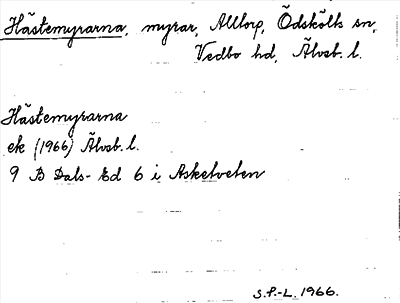 Hästemyrarna, myrar, Alltorp, Ödskölts sn,
Vedbo hd, Älvsb. l.
Hästemyrarna
ek (1966) Älvsb. l.
9 B Dals-Ed 6 i Asketveten
S.P.-L. 1966.